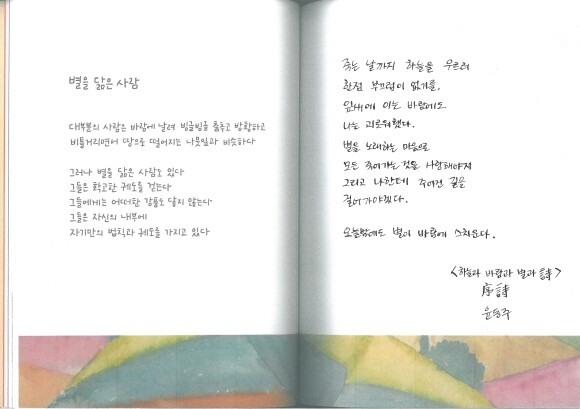 별을 닮은 사람
대부분의 사람은 바람에 날려 빙글빙글 춤추고 방황하고
비틀거리면서 땅으로 떨어지는 나뭇잎과 비슷하다
그러나 별을 닮은 사람도 있다
그들은 확고한 궤도를 걷는다
그들에게는 어떠한 강풍도 닿지 않는다
그들은 자신의 내부에
자기만의 법칙과 궤도를 가지고 있다
죽는 날까지 하늘을 우르러
한점 부끄럼이 없기를,
잎새에 이는 바람에도
나는 괴로워했다.
별을 노래하는 마음으로
모든 죽어가는 것을 사랑해야지
그리고 나한테 주어진 길을
걸어가야겠다.
오늘밤에도 별이 바람에 스치운다.
<하늘과 바람과 별과 詩>
序詩
윤동주